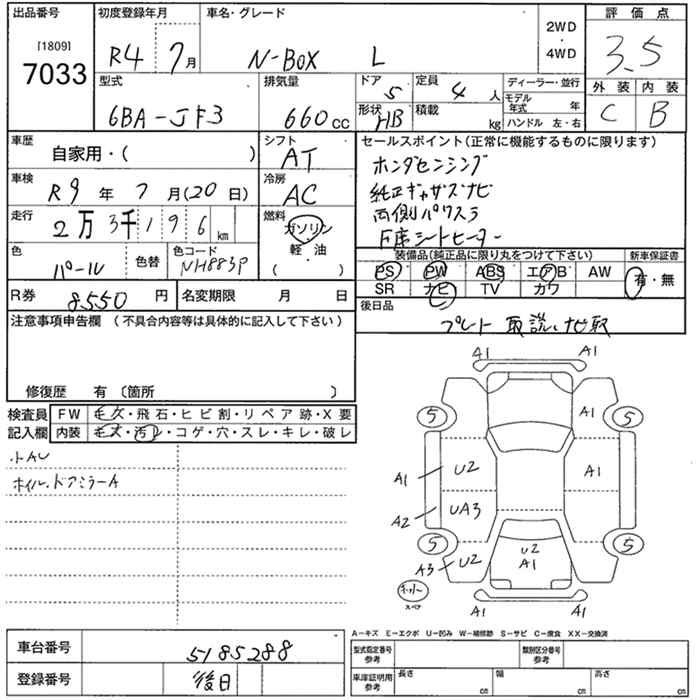 出品番号 初度登録年月 車名・グレード 評価点
[1809]
7033
R4 7月 N-BOX L
2WD
・
4WD
3.5
型式 排気量 ドア 定員 ディーラー・並行 外装 内装
6BA-JF3 660cc 5 4人
形状 HB 積載 kg
モデル年式 年
ハンドル 左・右
C B
車歴 自家用・( )
シフト AT
セールスポイント(正常に機能するものに限ります)
ホンダセンシング
純正ギャザズナビ
両側パワスラ
シートヒーター
車検 R9年 7月(20日)
冷房 AC
走行 2万3千196km
燃料 ガソリン
軽・油
( )
色 パール 色替 色コード NH883P
装備品(純正品に限り丸をつけて下さい) 新車保証書
PS PW ABS エアB AW 有・無
SR ナビ TV カワ
R券 8550円 名変期限 月 日
後日品
プレート 取説、地取
注意事項申告欄(不具合内容等は具体的に記入して下さい)
修復歴 有 〔箇所 〕
検査員 FW キズ・飛石・ヒビ割・リペア跡・X要
記入欄 内装 キズ・汚レ・コゲ・穴・スレ・キレ・破レ
小AU
ホイル、ドアミラーA
A1 A1
5 A1 5
A1 U2 A1
A2 UA3
5 U2 5
A3 U2 A1
スペア
A1 A1
A−キズ E−エクボ U−凹み W−補修跡 S−サビ C−腐食 XX−交換済
車台番号 5185288
型式指定番号 参考 類別区分番号 参考
登録番号 後日
車庫証明用 参考 長さ cm 幅 cm 高さ cm